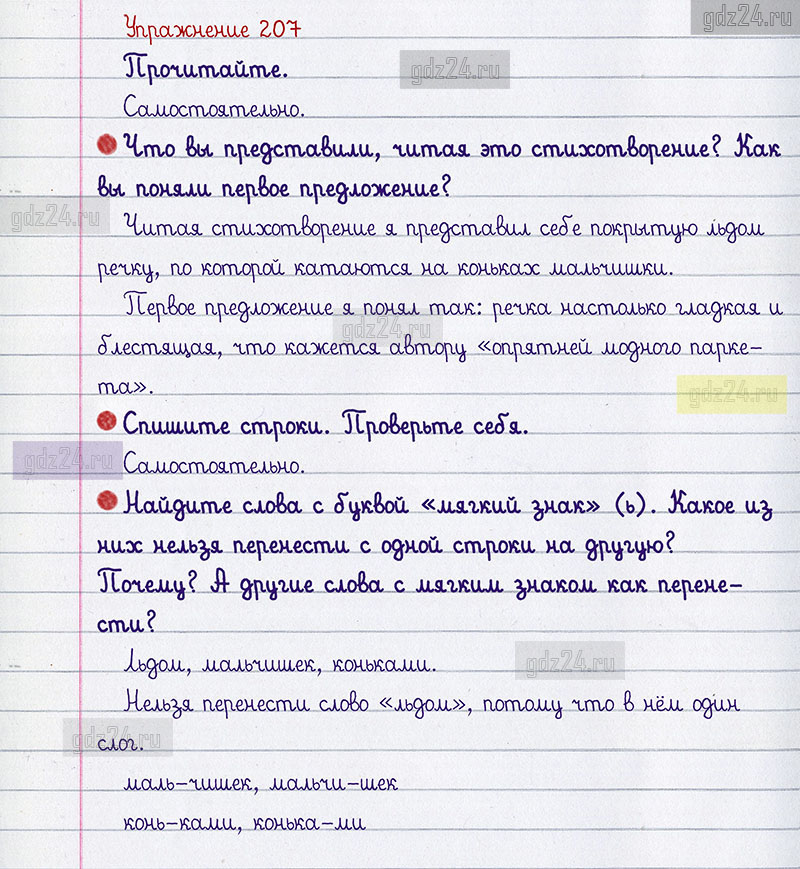 gdz24.ru
Упражнение 207
Прочитайте.
gdz24.ru
Самостоятельно.
Что вы представили, читая это стихотворение? Как
вы поняли первое предложение?
gdz24.ru
Читая стихотворение я представил себе покрытую льдом
речку, по которой катаются на коньках мальчишки.
Первое предложение я понял так: речка настолько гладкая и
gdz24.ru
блестящая, что кажется автору «опрятней модного парке-
та».
gdz24.ru
Спишите строки. Проверьте себя.
gdz24.ru
Самостоятельно.
Найдите слова с буквой «мягкий знак» (ь). Какое из
них нельзя перенести с одной строки на другую?
Почему? А другие слова с мягким знаком как перене-
сти?
Льдом, мальчишек, коньками.
gdz24.ru
Нельзя перенести слово «льдом», потому что в нём один
gdz24.ru
слог.
маль-чишек, мальчи-шек
конь-ками, конька-ми